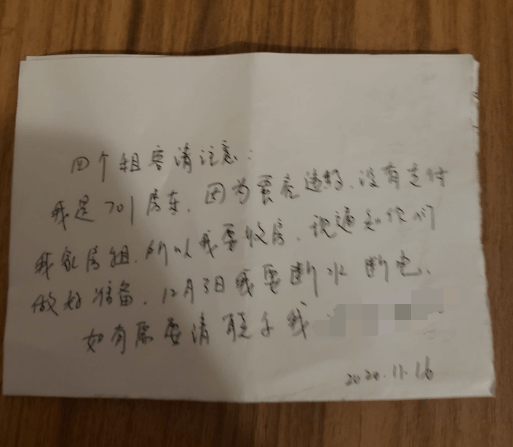 四个租客请注意:
我是701房东.因为蛋壳违约.没有支付
我家房租.所以我要收房.现通知你们
做好准备.12月3日我要断水断电.
如有需要请联系我
2020.11.16